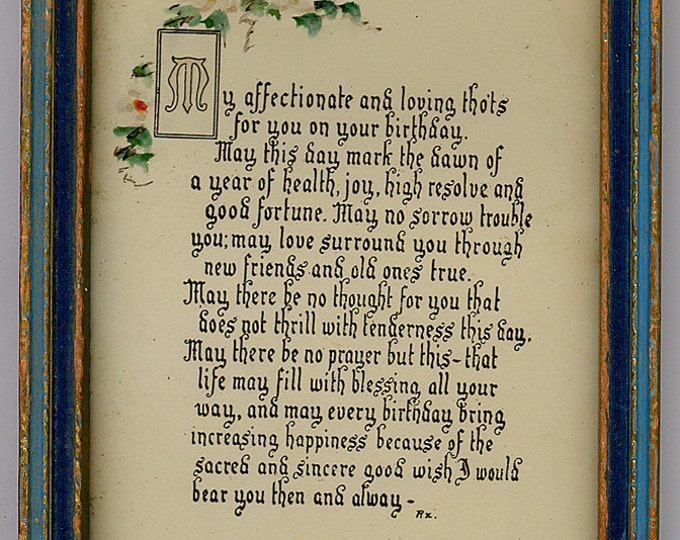 My affectionate and loving tho'ts
for you on your birthday.
May this day mark the dawn of
a year of health, joy, high resolve and
good fortune. May no sorrow trouble
you; may love surround you through
new friends and old ones true.
May there be no thought for you that
does not thrill with tenderness this day.
May there be no prayer but this- that
life may fill with blessing all your
way, and may every birthday bring
increasing happiness because of the
sacred and sincere good wish I would
bear you then and alway-
Rx.